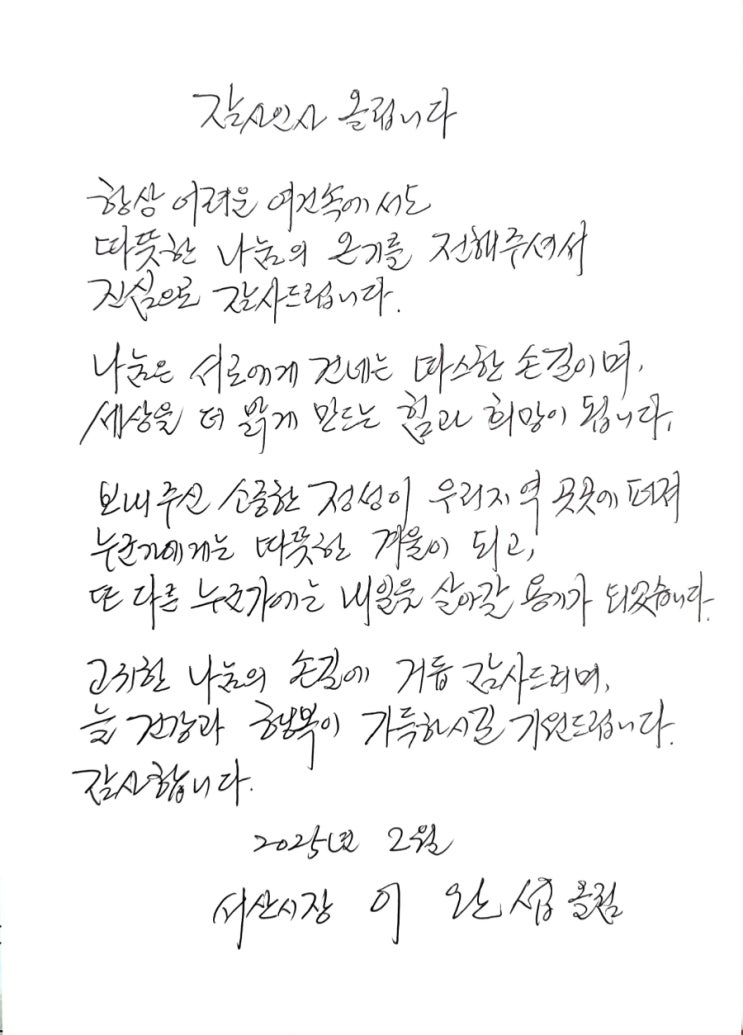 감사인사 올립니다
항상 어려운 여건속에서도
따뜻한 나눔의 온기를 전해주셔서
진심으로 감사드립니다.
나눔은 서로에게 건네는 따스한 손길이며,
세상을 더 밝게 만드는 힘과 희망이 됩니다.
보내주신 소중한 정성이 우리지역 곳곳에 퍼져
누군가에게는 따뜻한 겨울이 되고,
또 다른 누군가에는 내일을 살아갈 용기가 되었습니다.
고귀한 나눔의 손길에 거듭 감사드리며,
늘 건강과 행복이 가득하시길 기원드립니다.
감사합니다.
2025년 2월
서산시장 이 완 섭 올림